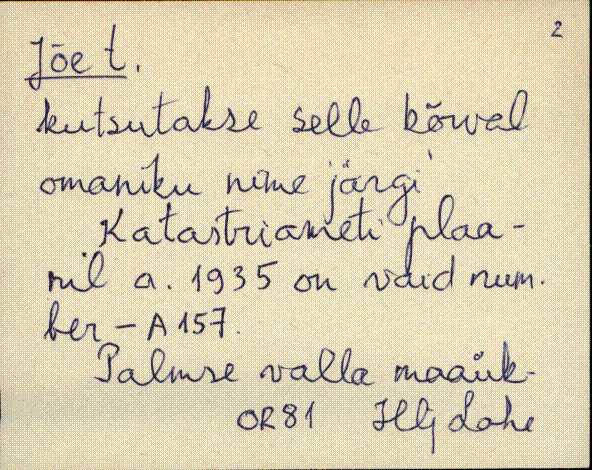 2
Jõe t.
kutsutakse selle kõrval
omaniku nime järgi
Katastriameti plaa-
nil a. 1935 on vaid num.
ber - A 157.
Palmse valla maaük-
OR81 Lohe